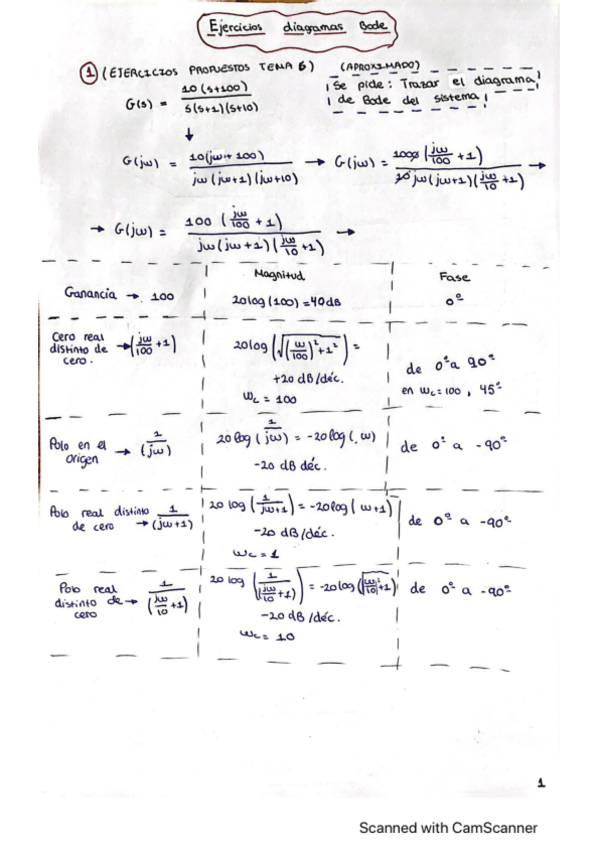 Ejercicios diagramas Bode
1 (EJERCICIOS PROPUESTOS TEMA 6) (APROXIMADO)
G(s) = 10(s+100) / s(s+1)(s+10)
Se pide: Trazar el diagrama
de Bode del sistema
↓
G(jω) = 10(jω+100) / jω(jω+1)(jω+10) → G(jω) = 1000(jω/100 + 1) / 10jω(jω+1)(jω/10 + 1) →
→ G(jω) = 100(jω/100 + 1) / jω(jω+1)(jω/10 + 1) →
Magnitud Fase
Ganancia → 100 20log(100) = 40dB 0º
Cero real distinto de cero. → (jω/100 + 1)
20log(√((ω/100)² + 1²)) =
+20 dB/déc.
ωc = 100
de 0º a 90º
en ωc = 100, 45º
Polo en el origen → 1/(jω)
20log(1/jω) = -20log(ω)
-20 dB déc.
de 0º a -90º
Polo real distinto de cero → 1/(jω+1)
20 log(1/jω+1) = -20log(ω+1)
-20 dB/déc.
ωc = 1
de 0º a -90º
Polo real distinto de cero → 1/(jω/10 + 1)
20 log(1/(jω/10 + 1)) = -20log(√|ω/10|² + 1)
-20 dB/déc.
ωc = 10
de 0º a -90º
1
Scanned with CamScanner